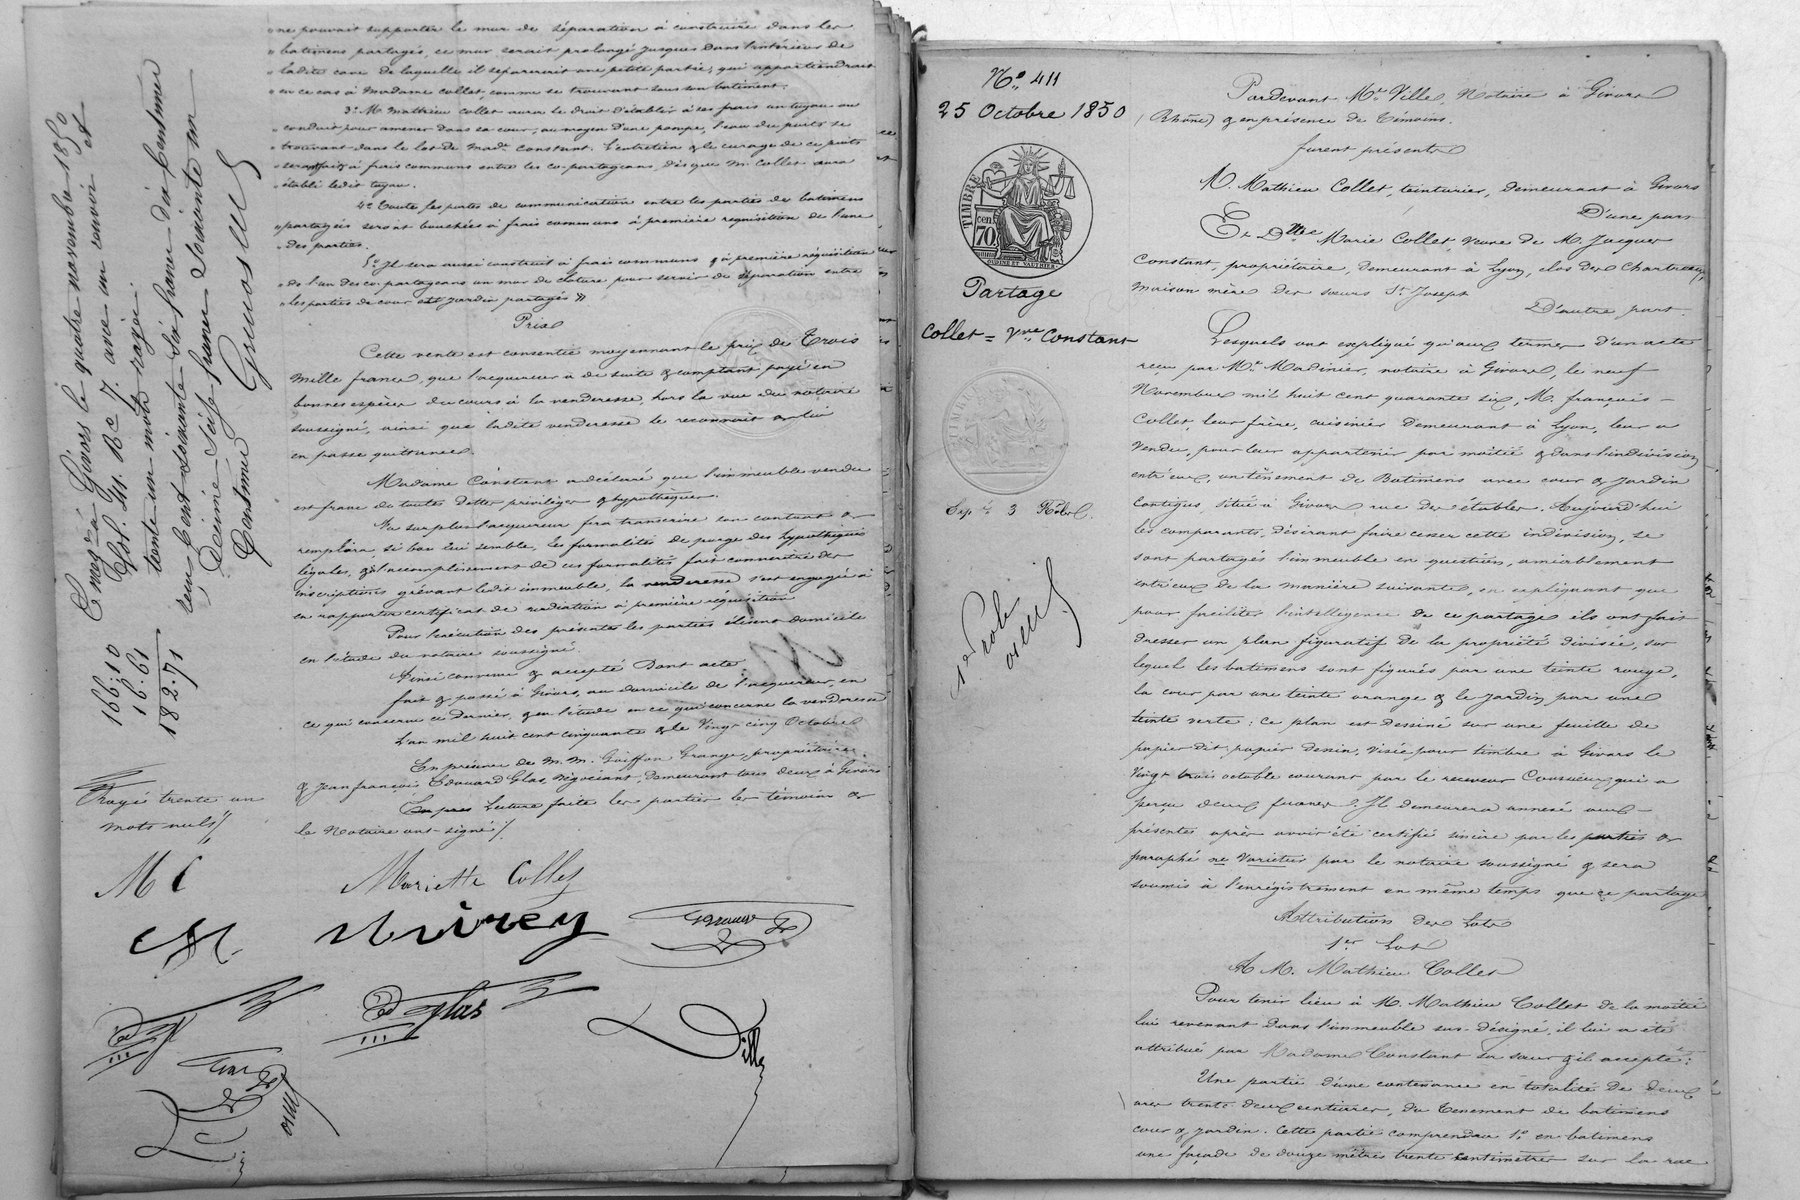 ne pouvait supporter le mur de séparation à construire dans les
batimens partagés, ce mur serait prolongé jusques dans l'intérieur de
ladite cave de laquelle il séparerait une petite partie, qui appartiendrait
en ce cas à Madame Collet, comme se trouvant sous son batiment.
3º M. Mathieu Collet aura le droit d'établir à ses frais un tuyau ou
conduit pour amener dans sa cour, au moyen d'une pompe, l'eau du puits se
trouvant dans le lot de Made Constant. L'entretien & le curage de ce puits
seront faits à frais communs entre les co-partageans, dès que M. Collet aura
établi ledit tuyau.
4º Toutes les portes de communication entre les parties de batimens
partagées seront bouchées à frais communs à première réquisition de l'une
des parties.
5º Il sera aussi construit à frais communs & à première réquisition
de l'un des co-partageans un mur de cloture pour servir de séparation entre
les parties de cour et jardin partagés »
Prix
Cette vente est consentie moyennant le prix de Trois
mille francs, que l'acquéreur a de suite & comptant payé en
bonnes espèces du cours à la venderesse, hors la vue du notaire
soussigné, ainsi que ladite venderesse le reconnait & lui
en passe quittance.
Madame Constant a déclaré que l'immeuble vendu
est franc de toutes dettes privilèges & hypothèques.
Au surplus l'acquéreur fera transcrire son contrat &
remplira, si bon lui semble, les formalités de purge des hypothèques
légales, & si l'accomplissement de ces formalités fait connaitre des
inscriptions grévant ledit immeuble, la venderesse s'est engagée à
en rapporter certificat de radiation à première réquisition.
Pour l'exécution des présentes les parties élisent domicile
en l'étude du notaire soussigné.
Ainsi convenu & accepté Dont acte
fait & passé à Givors, au domicile de l'acquéreur, en
ce qui concerne ce dernier, & en l'étude en ce qui concerne la venderesse
L'an mil huit cent cinquante & le Vingt cinq Octobre
En présence de M.M. Goiffon Grange, propriétaire
& Jean françois Edouard Glas Négociant, demeurant tous deux à Givors
Après Lecture faite les parties les témoins &
le Notaire ont signé /.
Mariette Collet
Ville
Enregé à Givors le quatre novembre 1850
fol. 41. Rº C. 7. avec un renvoi et
trente un mots rayés.
reçu Cent soixante six francs dix centimes
Décime seize francs soixante un
Centimes
166.10
16.61
182.71
Rayé trente un
mots nuls
M C
Nº 411
25 Octobre 1850
TIMBRE
70 cen
Partage
Collet = Vve Constant
Exp. 3 Rôles
1er Rôle
Pardevant Me Ville, Notaire à Givors
(Rhône) & en présence de témoins.
furent présents
M. Mathieu Collet, teinturier, demeurant à Givors
D'une part
Et Dlle Marie Collet, veuve de M. Jacques
Constant, propriétaire, demeurant à Lyon, clos des Chartreux,
maison mère des sœurs St Joseph
D'autre part.
Lesquels ont expliqué qu'aux termes d'un acte
reçu par Me Madinier, notaire à Givors, le neuf
Novembre mil huit cent quarante six, M. françois
Collet, leur frère, cuisinier demeurant à Lyon, leur a
Vendu, pour leur appartenir par moitié & dans l'indivision
entr'eux, un tènement de Batimens avec cour & Jardin
Contigus, situé à Givors rue des étables. Aujourd'hui
les comparants, désirant faire cesser cette indivision, se
sont partagés l'immeuble en question, amiablement
entr'eux de la manière suivante, en expliquant que
pour faciliter l'intelligence de ce partage ils ont fait
dresser un plan figuratif de la propriété divisée, sur
lequel les batimens sont figurés par une teinte rouge,
la cour par une teinte orange & le Jardin par une
teinte verte: ce plan est dessiné sur une feuille de
papier dit papier dessin, visée pour timbre à Givors le
Vingt trois octobre courant par le receveur Cousueur qui a
perçu deux francs. Il demeurera annexé aux
présentes après avoir été certifié sincère par les parties &
paraphé ne Varietur par le notaire soussigné & sera
soumis à l'enrégistrement en même temps que ce partage
Attribution des Lots
1er Lot
A M. Mathieu Collet
Pour tenir lieu à M. Mathieu Collet de la moitié
lui revenant dans l'immeuble sus-désigné, il lui a été
attribué par Madame Constant sa sœur & il accepte:
Une partie d'une contenance en totalité de deux
ares trente deux centiares, du tènement de batimens
cour & jardin. Cette partie comprendra 1º en batimens
une façade de douze mètres trente centimètres sur la rue